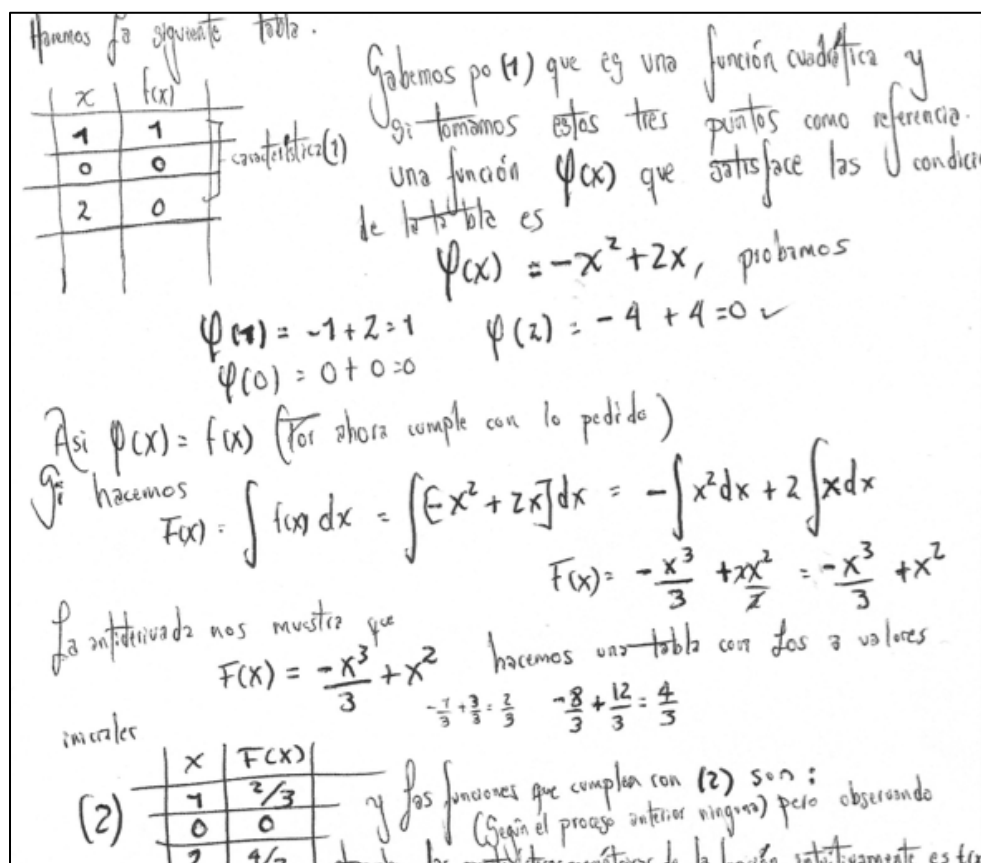 Haremos la siguiente tabla.
x f(x)
1 1
0 0
2 0
característica (1)
Sabemos po (1) que es una función cuadrática y
si tomamos estos tres puntos como referencia.
una función φ(x) que satisface las condici
de la tabla es
φ(x) = -x² + 2x, probamos
φ(1) = -1 + 2 = 1 φ(2) = -4 + 4 = 0 ✓
φ(0) = 0 + 0 = 0
Asi φ(x) = f(x) (Por ahora cumple con lo pedido)
Si hacemos
F(x) = ∫ f(x) dx = ∫[-x² + 2x]dx = -∫x²dx + 2∫xdx
F(x) = -x³/3 + 2x²/2 = -x³/3 + x²
La antiderivada nos muestra que
F(x) = -x³/3 + x² hacemos una tabla con los 3 valores
-1/3 + 3/3 = 2/3 -8/3 + 12/3 = 4/3
iniciales
x F(x)
(2) 1 2/3
0 0
2 4/3
y las funciones que cumplen con (2) son:
(Según el proceso anterior ninguna) pero observando
de la función intuitivamente es f(x